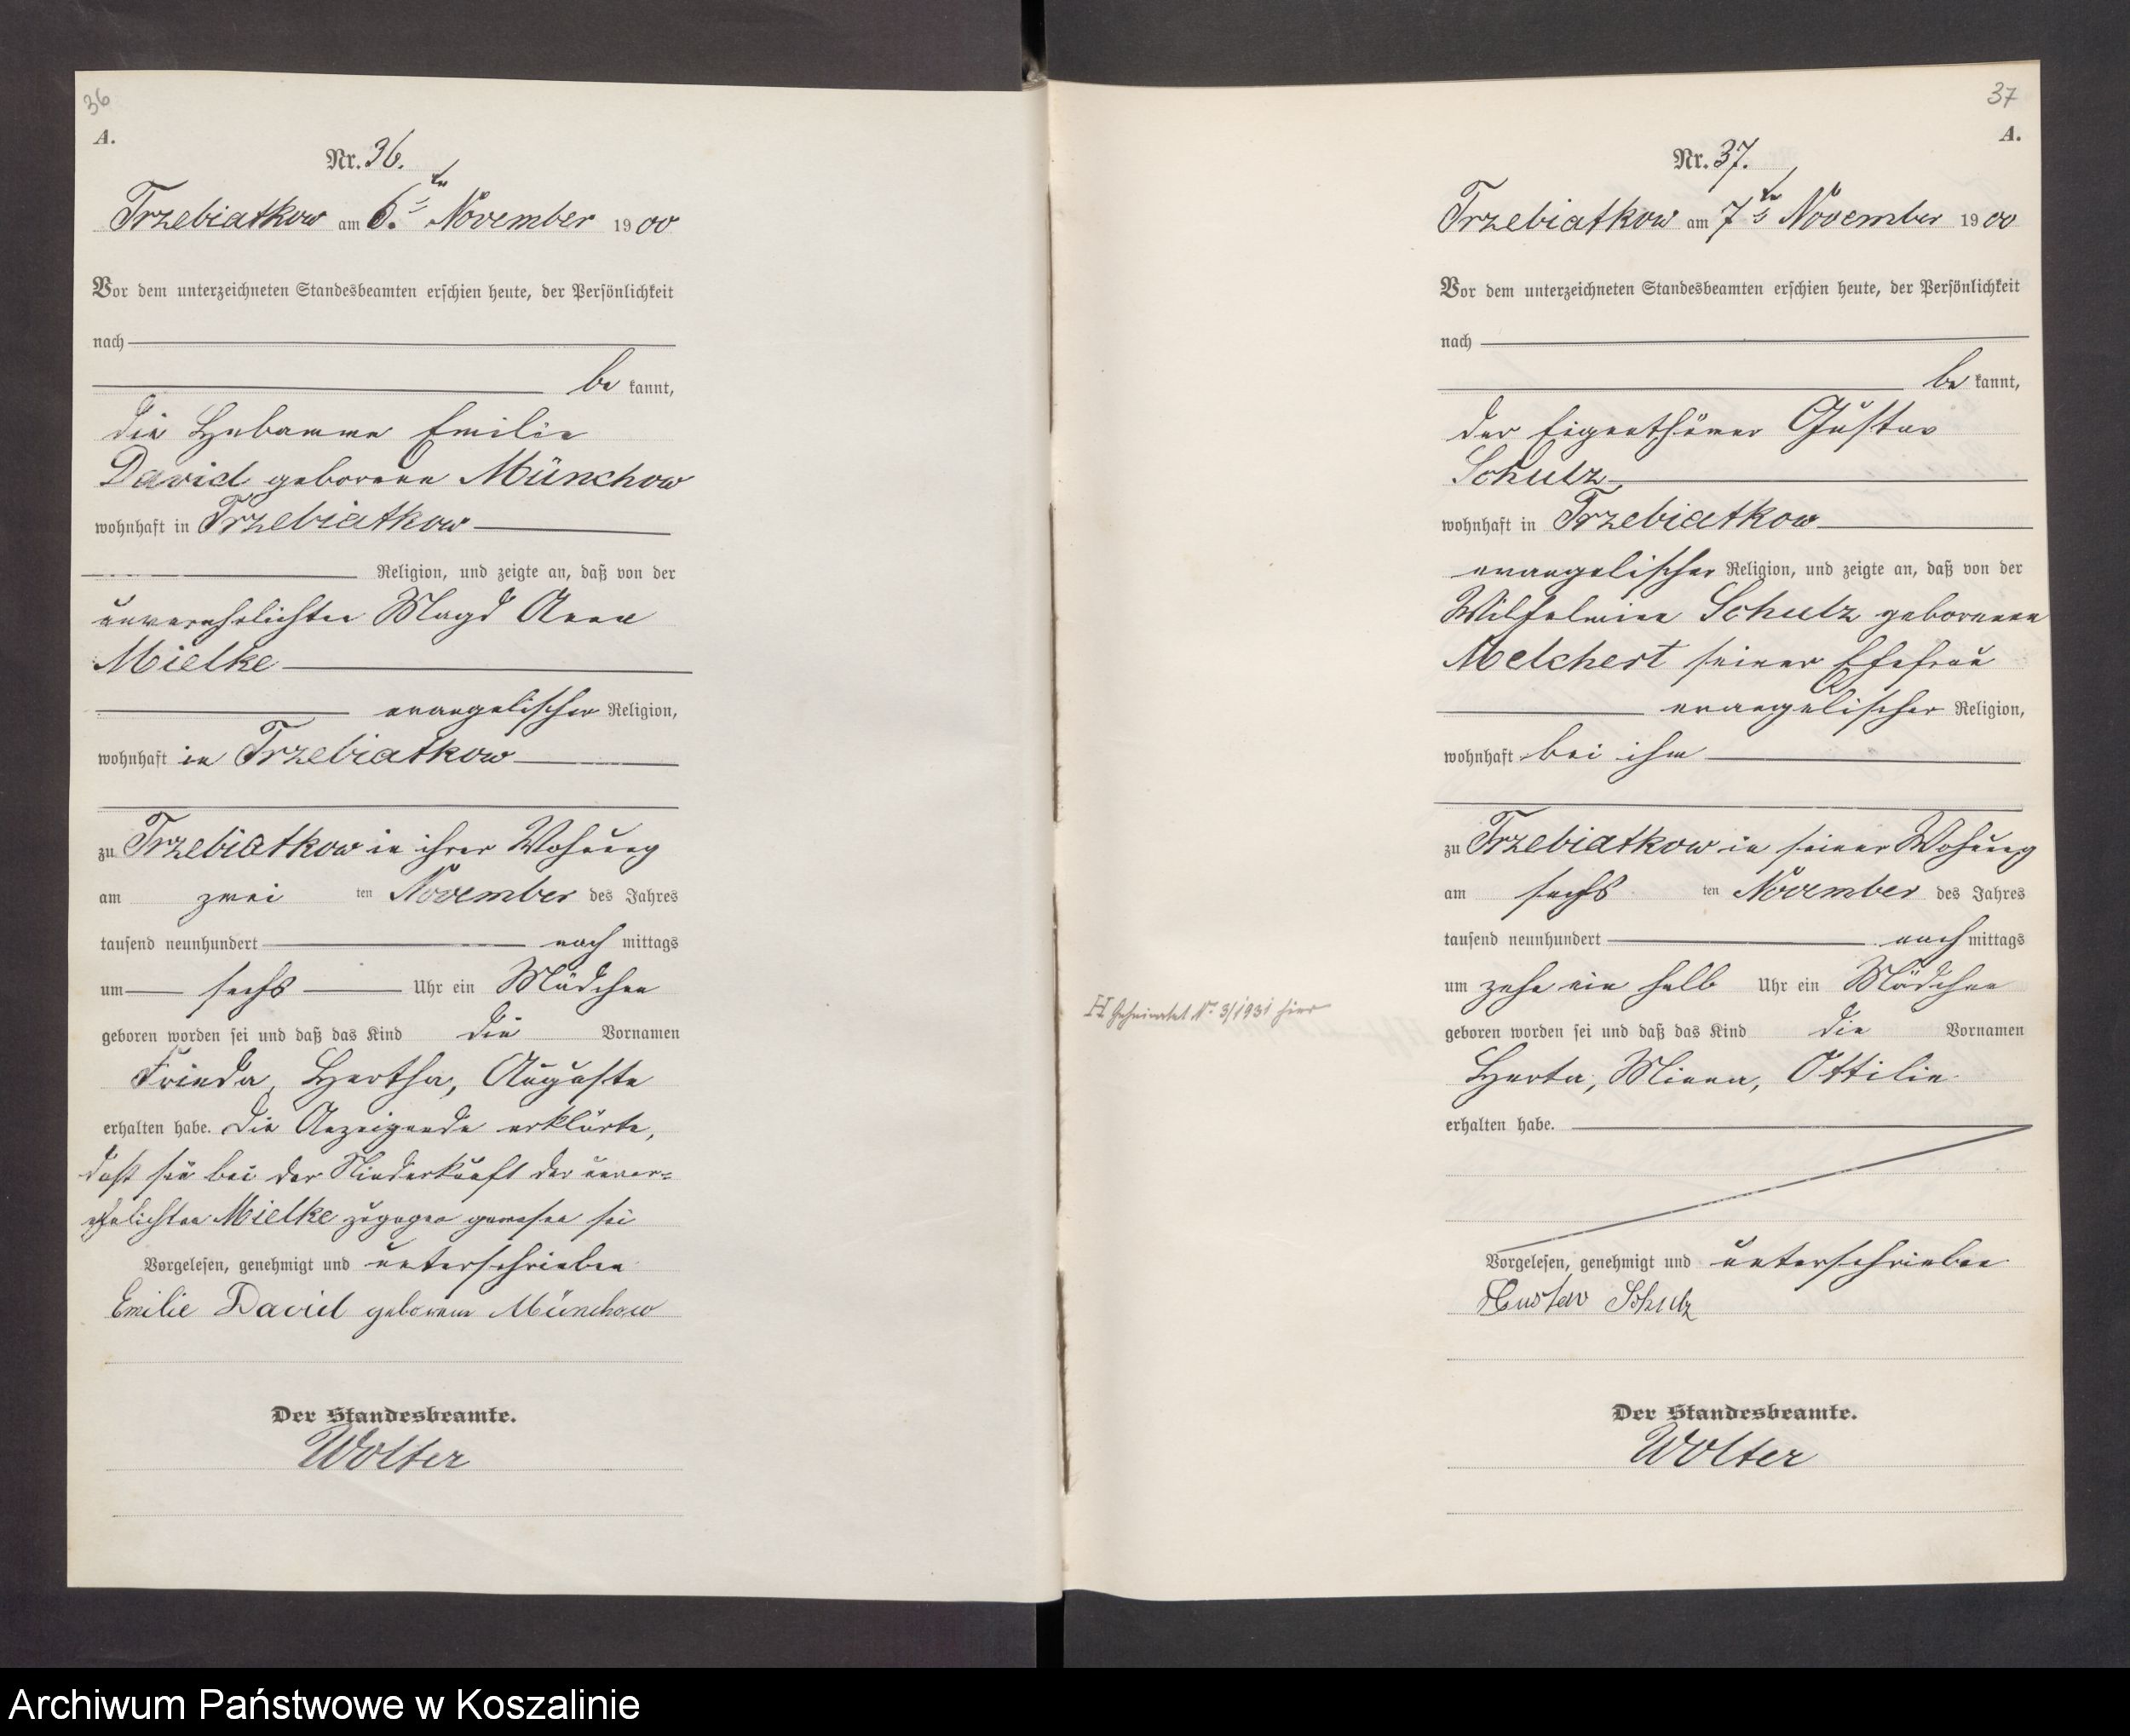 36
A.
Nr. 36.
Trzebiatkow am 6. ten November 1900
Vor dem unterzeichneten Standesbeamten erschien heute, der Persönlichkeit
nach
be kannt,
die Hebamme Emilie
David geborene Münchow
wohnhaft in Trzebiatkow
Religion, und zeigte an, daß von der
unverehelichten Magd Anna
Mielke
evangelischer Religion,
wohnhaft in Trzebiatkow
zu Trzebiatkow in ihrer Wohnung
am zwei ten November des Jahres
tausend neunhundert nach mittags
um sechs Uhr ein Mädchen
geboren worden sei und daß das Kind die Vornamen
Frieda, Hertha, Auguste
erhalten habe. Die Anzeigende erklärte,
daß sie bei der Niederkunft der unver=
ehelichten Mielke zugegen gewesen sei
Vorgelesen, genehmigt und unterschrieben
Emilie David geborene Münchow
Der Standesbeamte.
Wolter
37
A.
Nr. 37.
Trzebiatkow am 7 ten November 1900
Vor dem unterzeichneten Standesbeamten erschien heute, der Persönlichkeit
nach
be kannt,
der Eigenthümer Gustav
Schulz
wohnhaft in Trzebiatkow
evangelischer Religion, und zeigte an, daß von der
Wilhelmine Schulz geborenen
Melchert seiner Ehefrau
evangelischer Religion,
wohnhaft bei ihm
zu Trzebiatkow in seiner Wohnung
am sechs ten November des Jahres
tausend neunhundert nach mittags
um zehn ein halb Uhr ein Mädchen
geboren worden sei und daß das Kind die Vornamen
Herta, Minna, Ottilie
erhalten habe.
Vorgelesen, genehmigt und unterschrieben
Gustav Schulz
Der Standesbeamte.
Wolter
geheiratet Nr 3/1931 hier
Archiwum Państwowe w Koszalinie